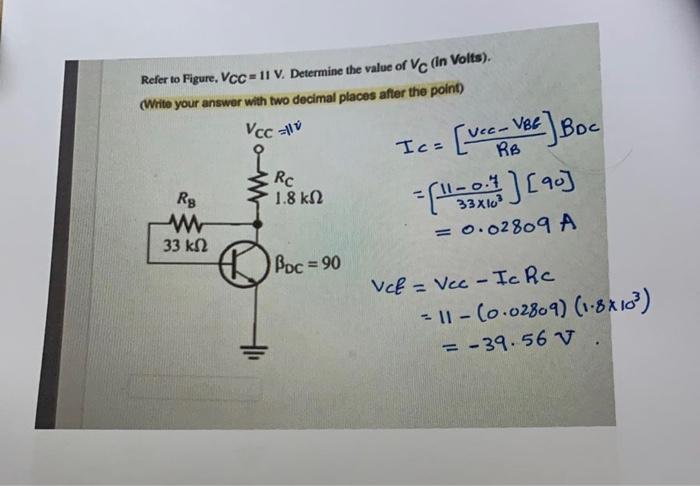 Refer to Figure, VCC = 11 V. Determine the value of VC (in Volts).
(Write your answer with two decimal places after the point)
VCC =11V
RC
1.8 kΩ
RB
33 kΩ
βDC = 90
IC = [VCC - VBE / RB] BDC
= [11 - 0.7 / 33×10³] [90]
= 0.02809 A
VCE = VCC - IC RC
= 11 - (0.02809) (1.8×10³)
= -39.56 V .